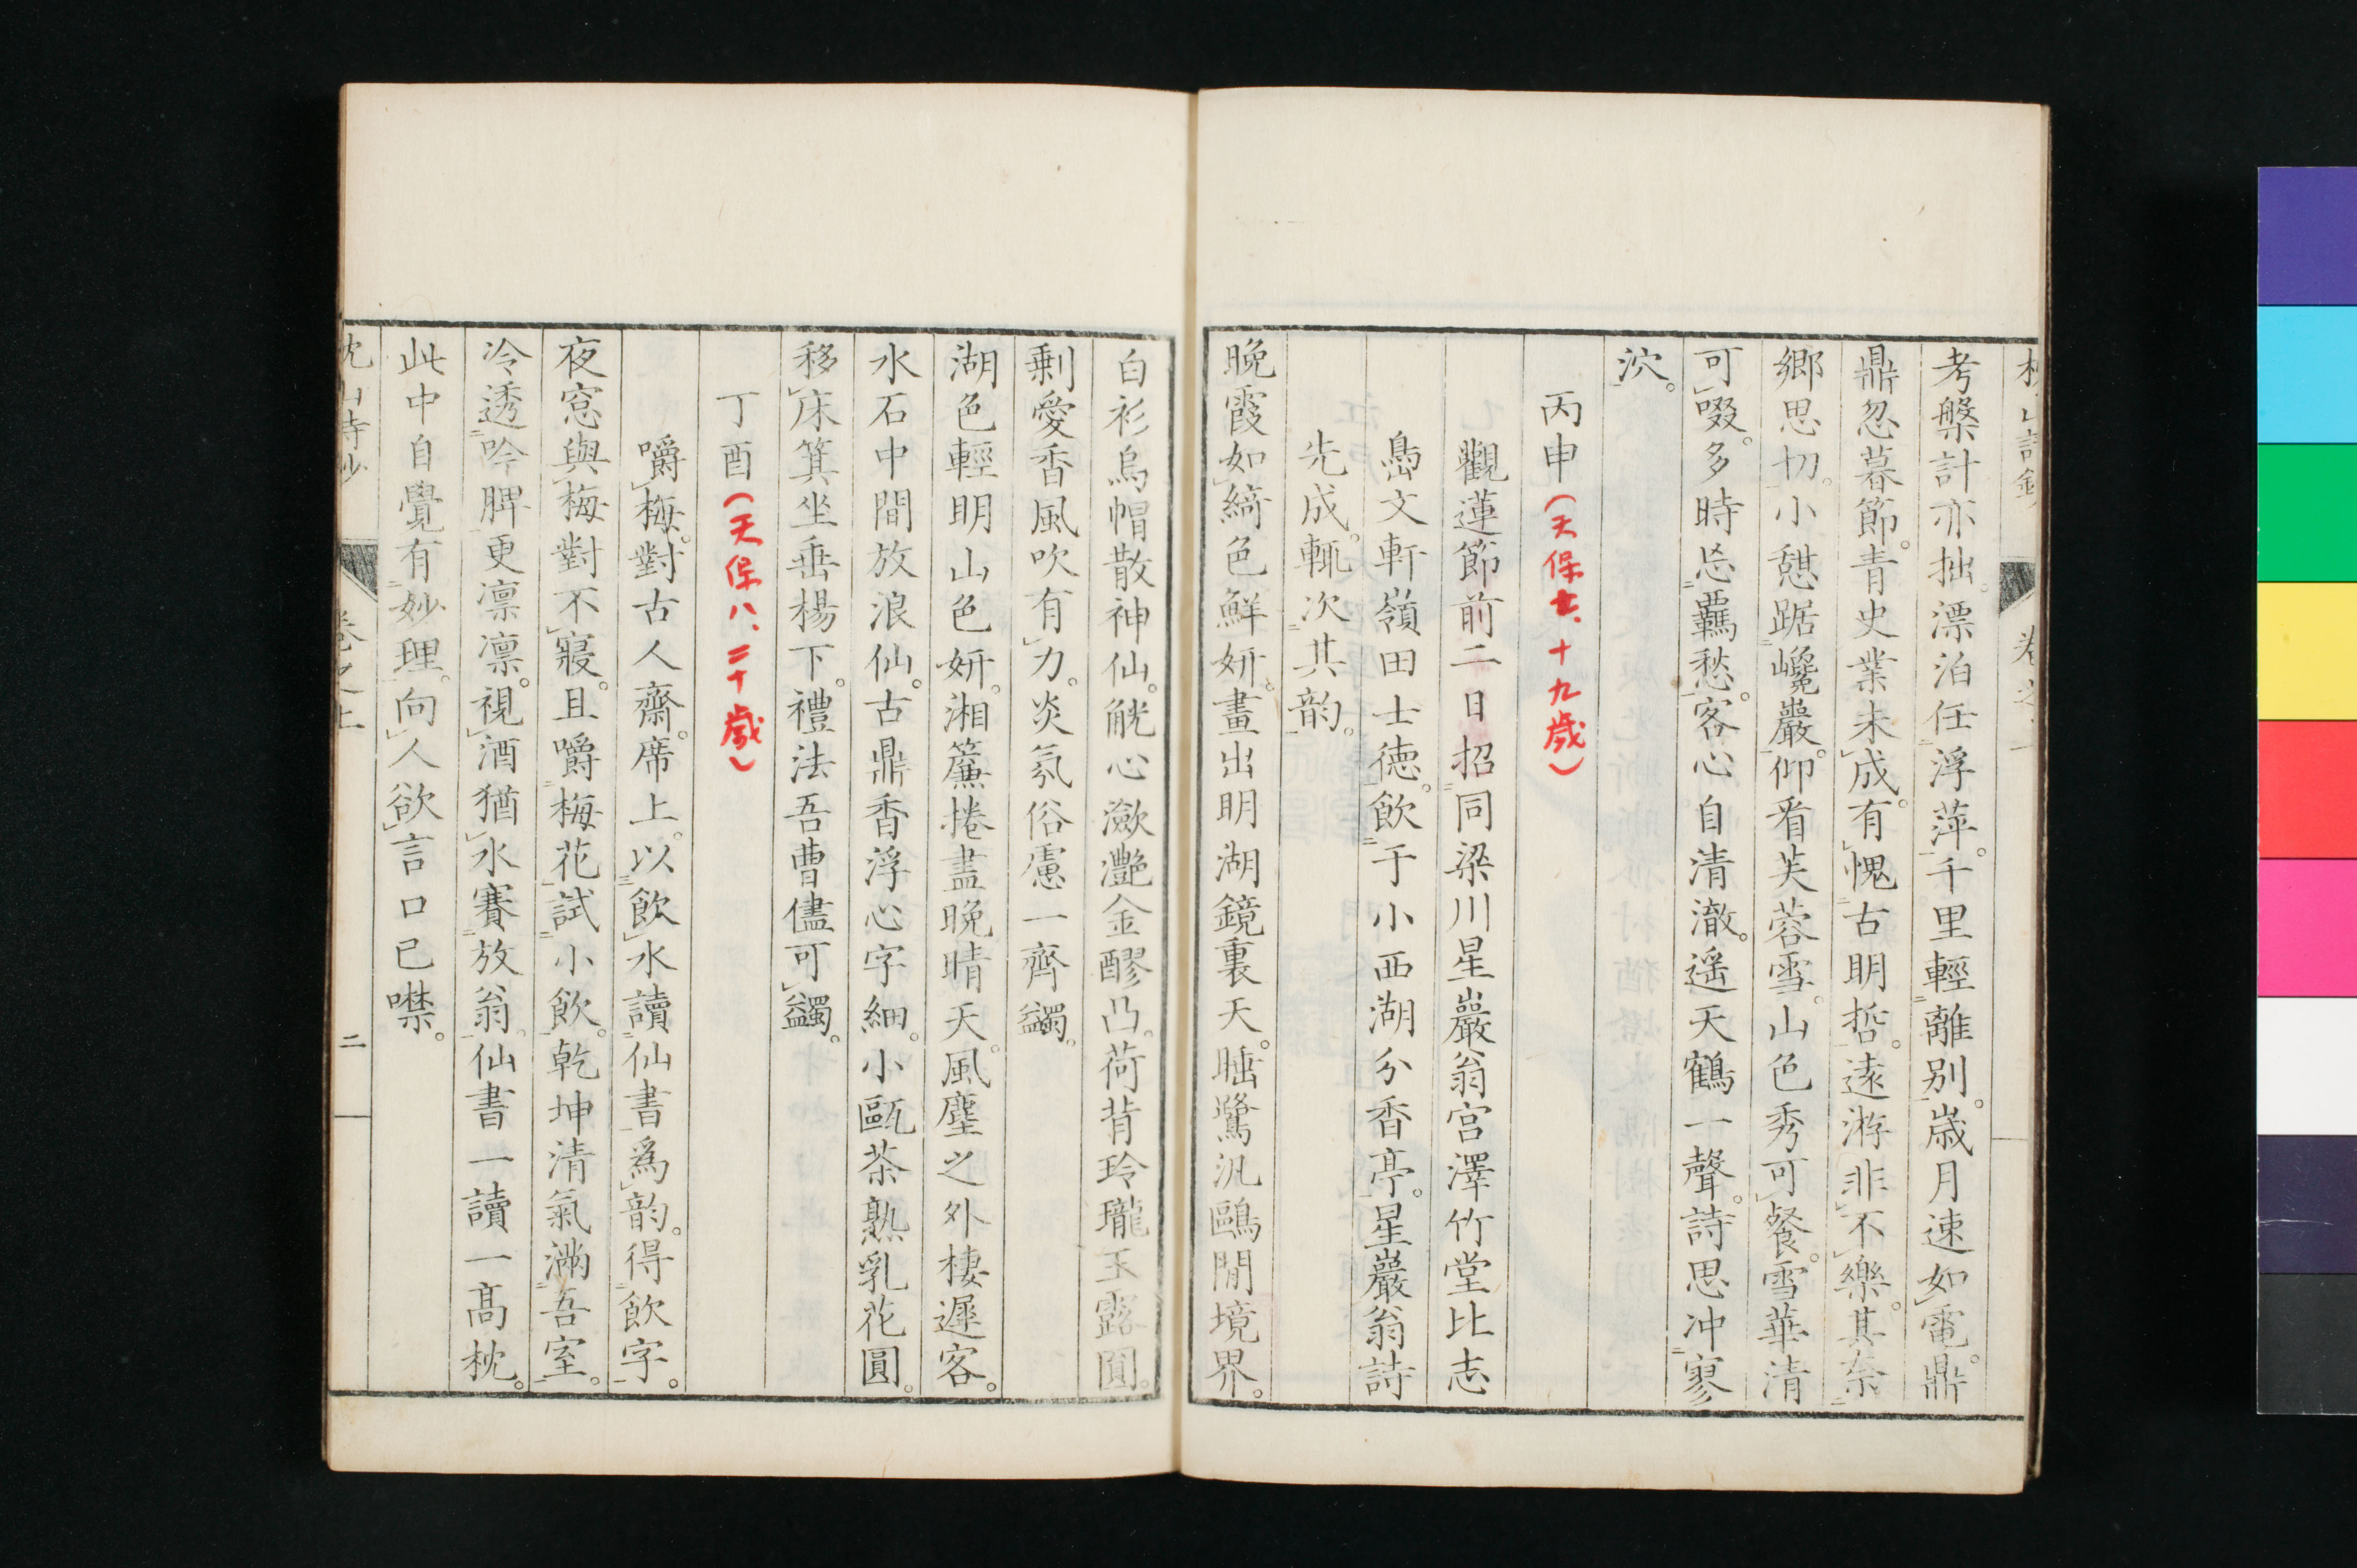 考槃計亦拙。漂泊任浮萍。千里輕離別。歳月速如電。鼎
鼎忽暮節。青史業未成。有愧古明哲。遠游非不樂。其奈
鄉思切。小憩踞巉巖。仰看芙蓉雪。山色秀可餐。雪華清
可啜。多時忘羈愁。客心自清澈。遥天鶴一聲。詩思冲寥
泬。
丙申(天保七、十九歳)
觀蓮節前二日招同梁川星巖翁宮澤竹堂比志
嶌文軒嶺田士德。飲于小西湖分香亭。星巖翁詩
先成。輒次其韵。
晚霞如綺色鮮妍。畫出明湖鏡裏天。睡鷺汎鷗閒境界。
白衫烏帽散神仙。觥心瀲灔金醪凸。荷背玲瓏玉露圓。
剩愛香風吹有力。炎氛俗慮一齊蠲。
湖色輕明山色妍。湘簾捲盡晚晴天。風塵之外棲遲客。
水石中間放浪仙。古鼎香浮心字細。小甌茶熟乳花圓。
移床箕坐垂楊下。禮法吾曹儘可蠲。
丁酉(天保八、二十歳)
嚼梅。對古人齋。席上。以飲水讀仙書爲韵。得飲字。
夜窓與梅對不寢。且嚼梅花試小飲。乾坤清氣滿吾室。
冷透吟脾更凛凛。視酒猶水賽放翁。仙書一讀一高枕。
此中自覺有妙理。向人欲言口已噤。
枕山詩鈔
卷之上
二